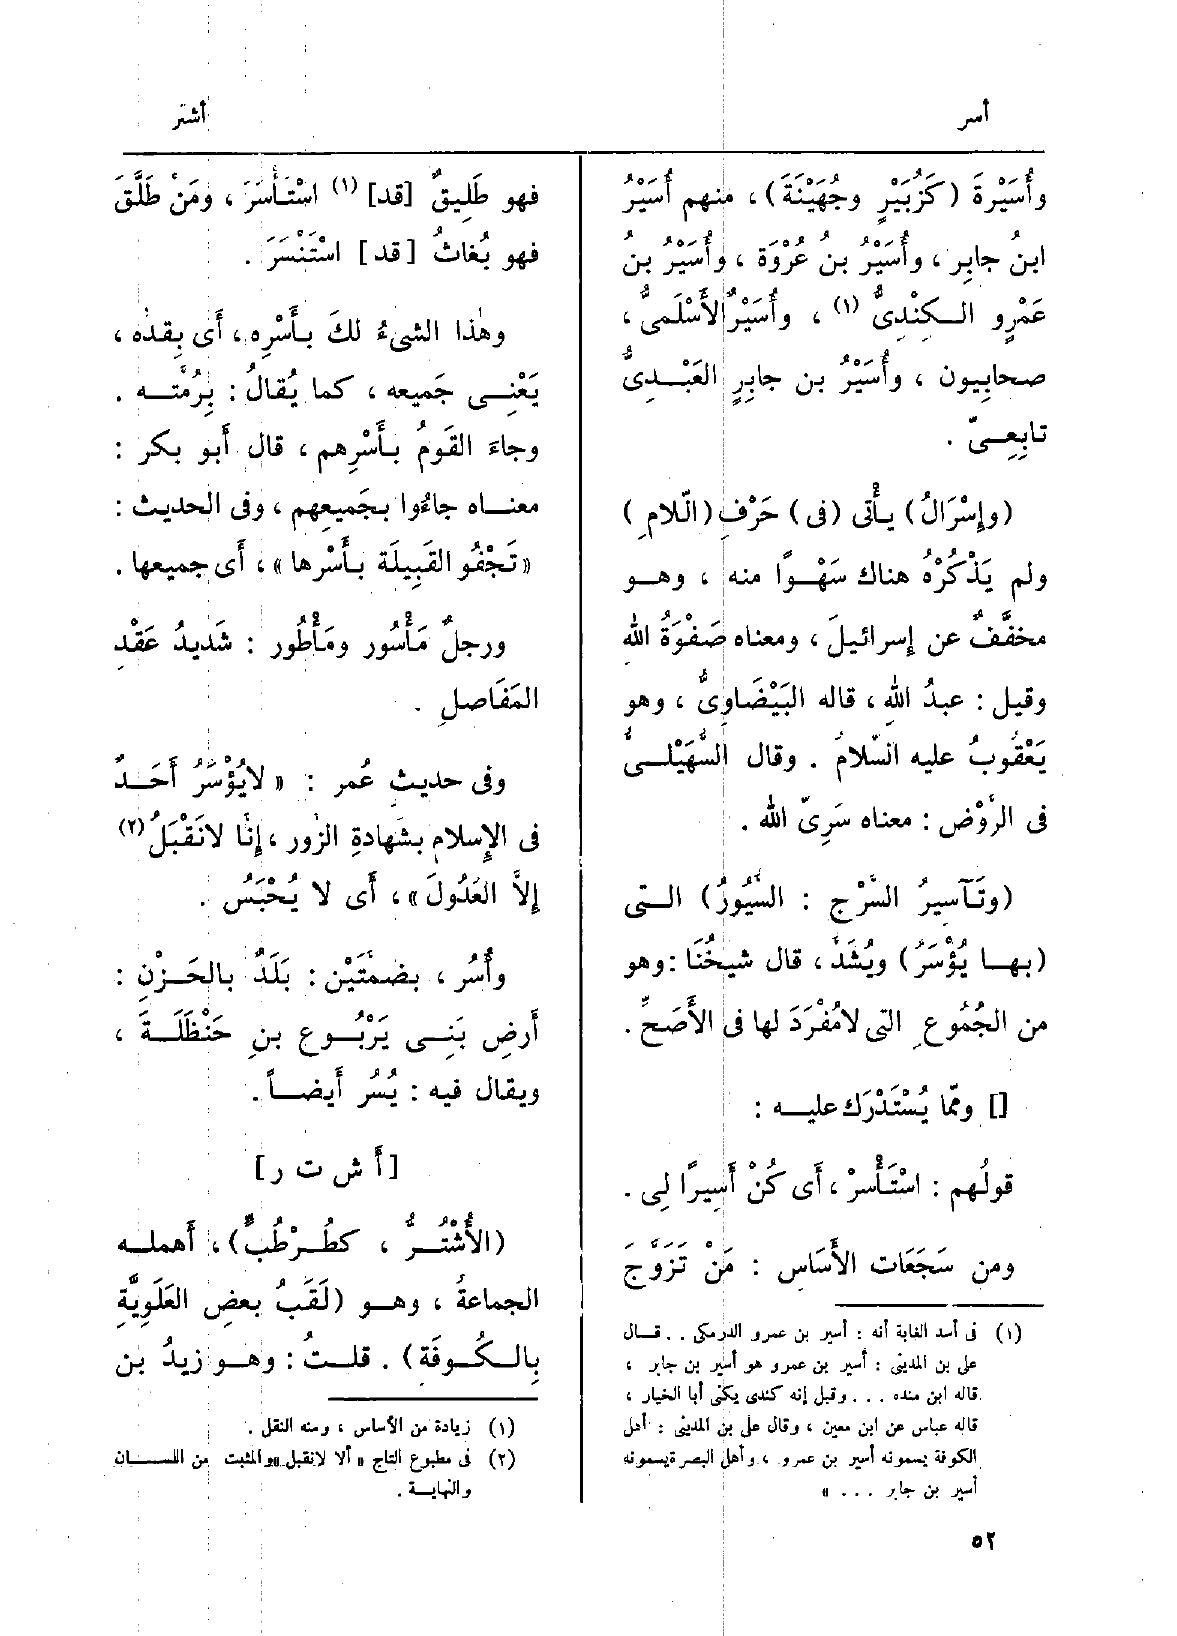 أسر
أشتر
وأُسَيْرة (كزُبَيْرٍ وجُهَيْنَة)، منهم أُسَيْرُ
ابنُ جابِر، وأُسَيْرُ بنُ عُرْوَة، وأُسَيْرُ بن
عَمْرٍو الكِنْدِىُّ (١)، وأُسَيْرٌ الأَسْلَمىُّ،
صحابِيون، وأُسَيْرُ بن جابِرٍ العَبْدِىُّ
تابِعِىّ.
(وإِسْرَالُ) يأْتى (فى) حَرْفِ (الّلامِ)
ولم يَذْكُرْهُ هناك سَهْوًا منه، وهو
مخفَّفٌ عن إِسرائيلَ، ومعناه صَفْوَةُ الله
وقيل: عبدُ اللهِ، قاله البَيْضَاوِىُّ، وهو
يَعْقُوبُ عليه السّلامُ. وقال السُّهَيْلِىُّ
فى الرَّوْض: معناه سَرِىّ الله.
(وتَآسيرُ السَّرْجِ: السُّيُورُ) التى
(بها يُؤْسَرُ) ويُشَدُّ، قال شيخُنَا: وهو
من الجُمُوعِ التى لامُفْرَدَ لها فى الأَصَحِّ.
[] وممّا يُسْتَدْرَك عليه:
قولُهم: اسْتَأْسرْ، أَى كُنْ أَسِيرًا لِى.
ومن سَجَعَات الأَسَاس: مَنْ تَزَوَّجَ
(١) فى أسد الغابة أنه: أسير بن عمرو الدرمكى .. قال
على بن المدينى: أسير بن عمرو هو أسير بن جابر،
قاله ابن منده ... وقيل إنه كندى يكنى أبا الخيار،
قاله عباس عن ابن معين، وقال على بن المدينى: أهل
الكوفة يسمونه أسير بن عمرو، وأهل البصرة يسمونه
أسير بن جابر ... »
فهو طَلِيقٌ [قد] (١) اسْتَأْسَرَ، ومَنْ طَلَّقَ
فهو بُغاثٌ [قد] اسْتَنْسَرَ.
وهٰذا الشىءُ لكَ بأَسْرِه، أَى بِقِدِّه،
يَعْنِى جَميعه، كما يُقالُ: بِرُمَّتِه.
وجاءَ القَومُ بأَسْرِهم، قال أَبو بكر:
معناه جاءُوا بجَميعِهم، وفى الحديث:
«تَجْفُو القَبِيلَة بأَسْرها»، أَى جميعها.
ورجلٌ مَأْسُور ومَأْطُور: شَديدُ عَقْدِ
المَفَاصلِ.
وفى حديث عُمر: «لايُؤْسَرُ أَحَدٌ
فى الإِسلام بشَهادةِ الزُّور، إِنَّا لانَقْبَلُ (٢)
إِلاَّ العَدُولَ»، أَى لا يُحْبَسُ.
وأُسُر، بضمتَيْن: بَلَدٌ بالحَزْنِ:
أَرضِ بَنِى يَرْبُوعِ بنِ حَنْظَلَةَ،
ويقال فيه: يُسُر أَيضاً.
[أ ش ت ر]
(الأُشْتُرُّ، كطُرْطُبٍّ)، أَهمله
الجماعةُ، وهو (لَقَبُ بعضِ العَلَوِيَّةِ
بِالكُوفَة). قلتُ: وهو زيدُ بن
(١) زيادة من الأساس، ومنه النقل.
(٢) فى مطبوع التاج «ألا لانقبل» والمثبت من اللسان
والنهاية.
٥٢